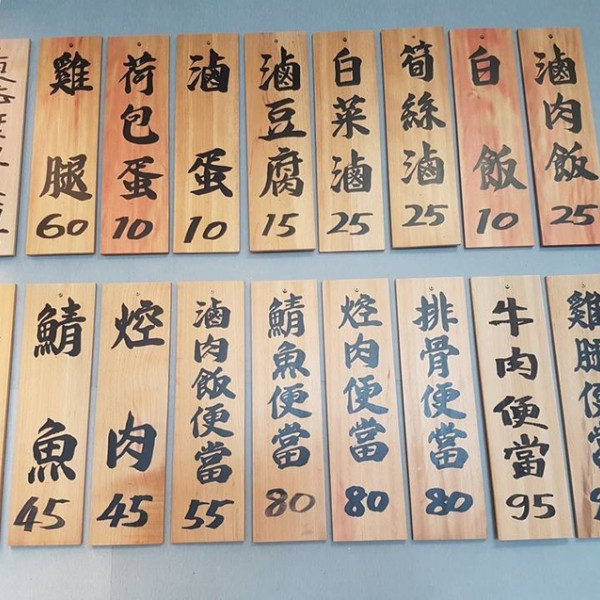 滷肉飯
25
白飯
10
筍絲滷
25
白菜滷
25
滷豆腐
15
滷蛋
10
荷包蛋
10
雞腿
60
雞腿便當
牛肉便當
95
排骨便當
80
焢肉便當
80
鯖魚便當
80
滷肉飯便當
55
焢肉
45
鯖魚
45